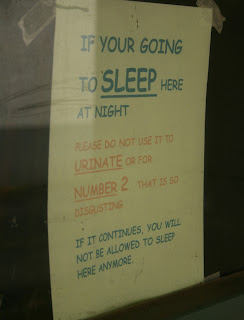 IF YOUR GOING
TO SLEEP HERE
AT NIGHT
PLEASE DO NOT USE IT TO
URINATE OR FOR
NUMBER 2 THAT IS SO
DISGUSTING
IF IT CONTINUES, YOU WILL
NOT BE ALLOWED TO SLEEP
HERE ANYMORE.